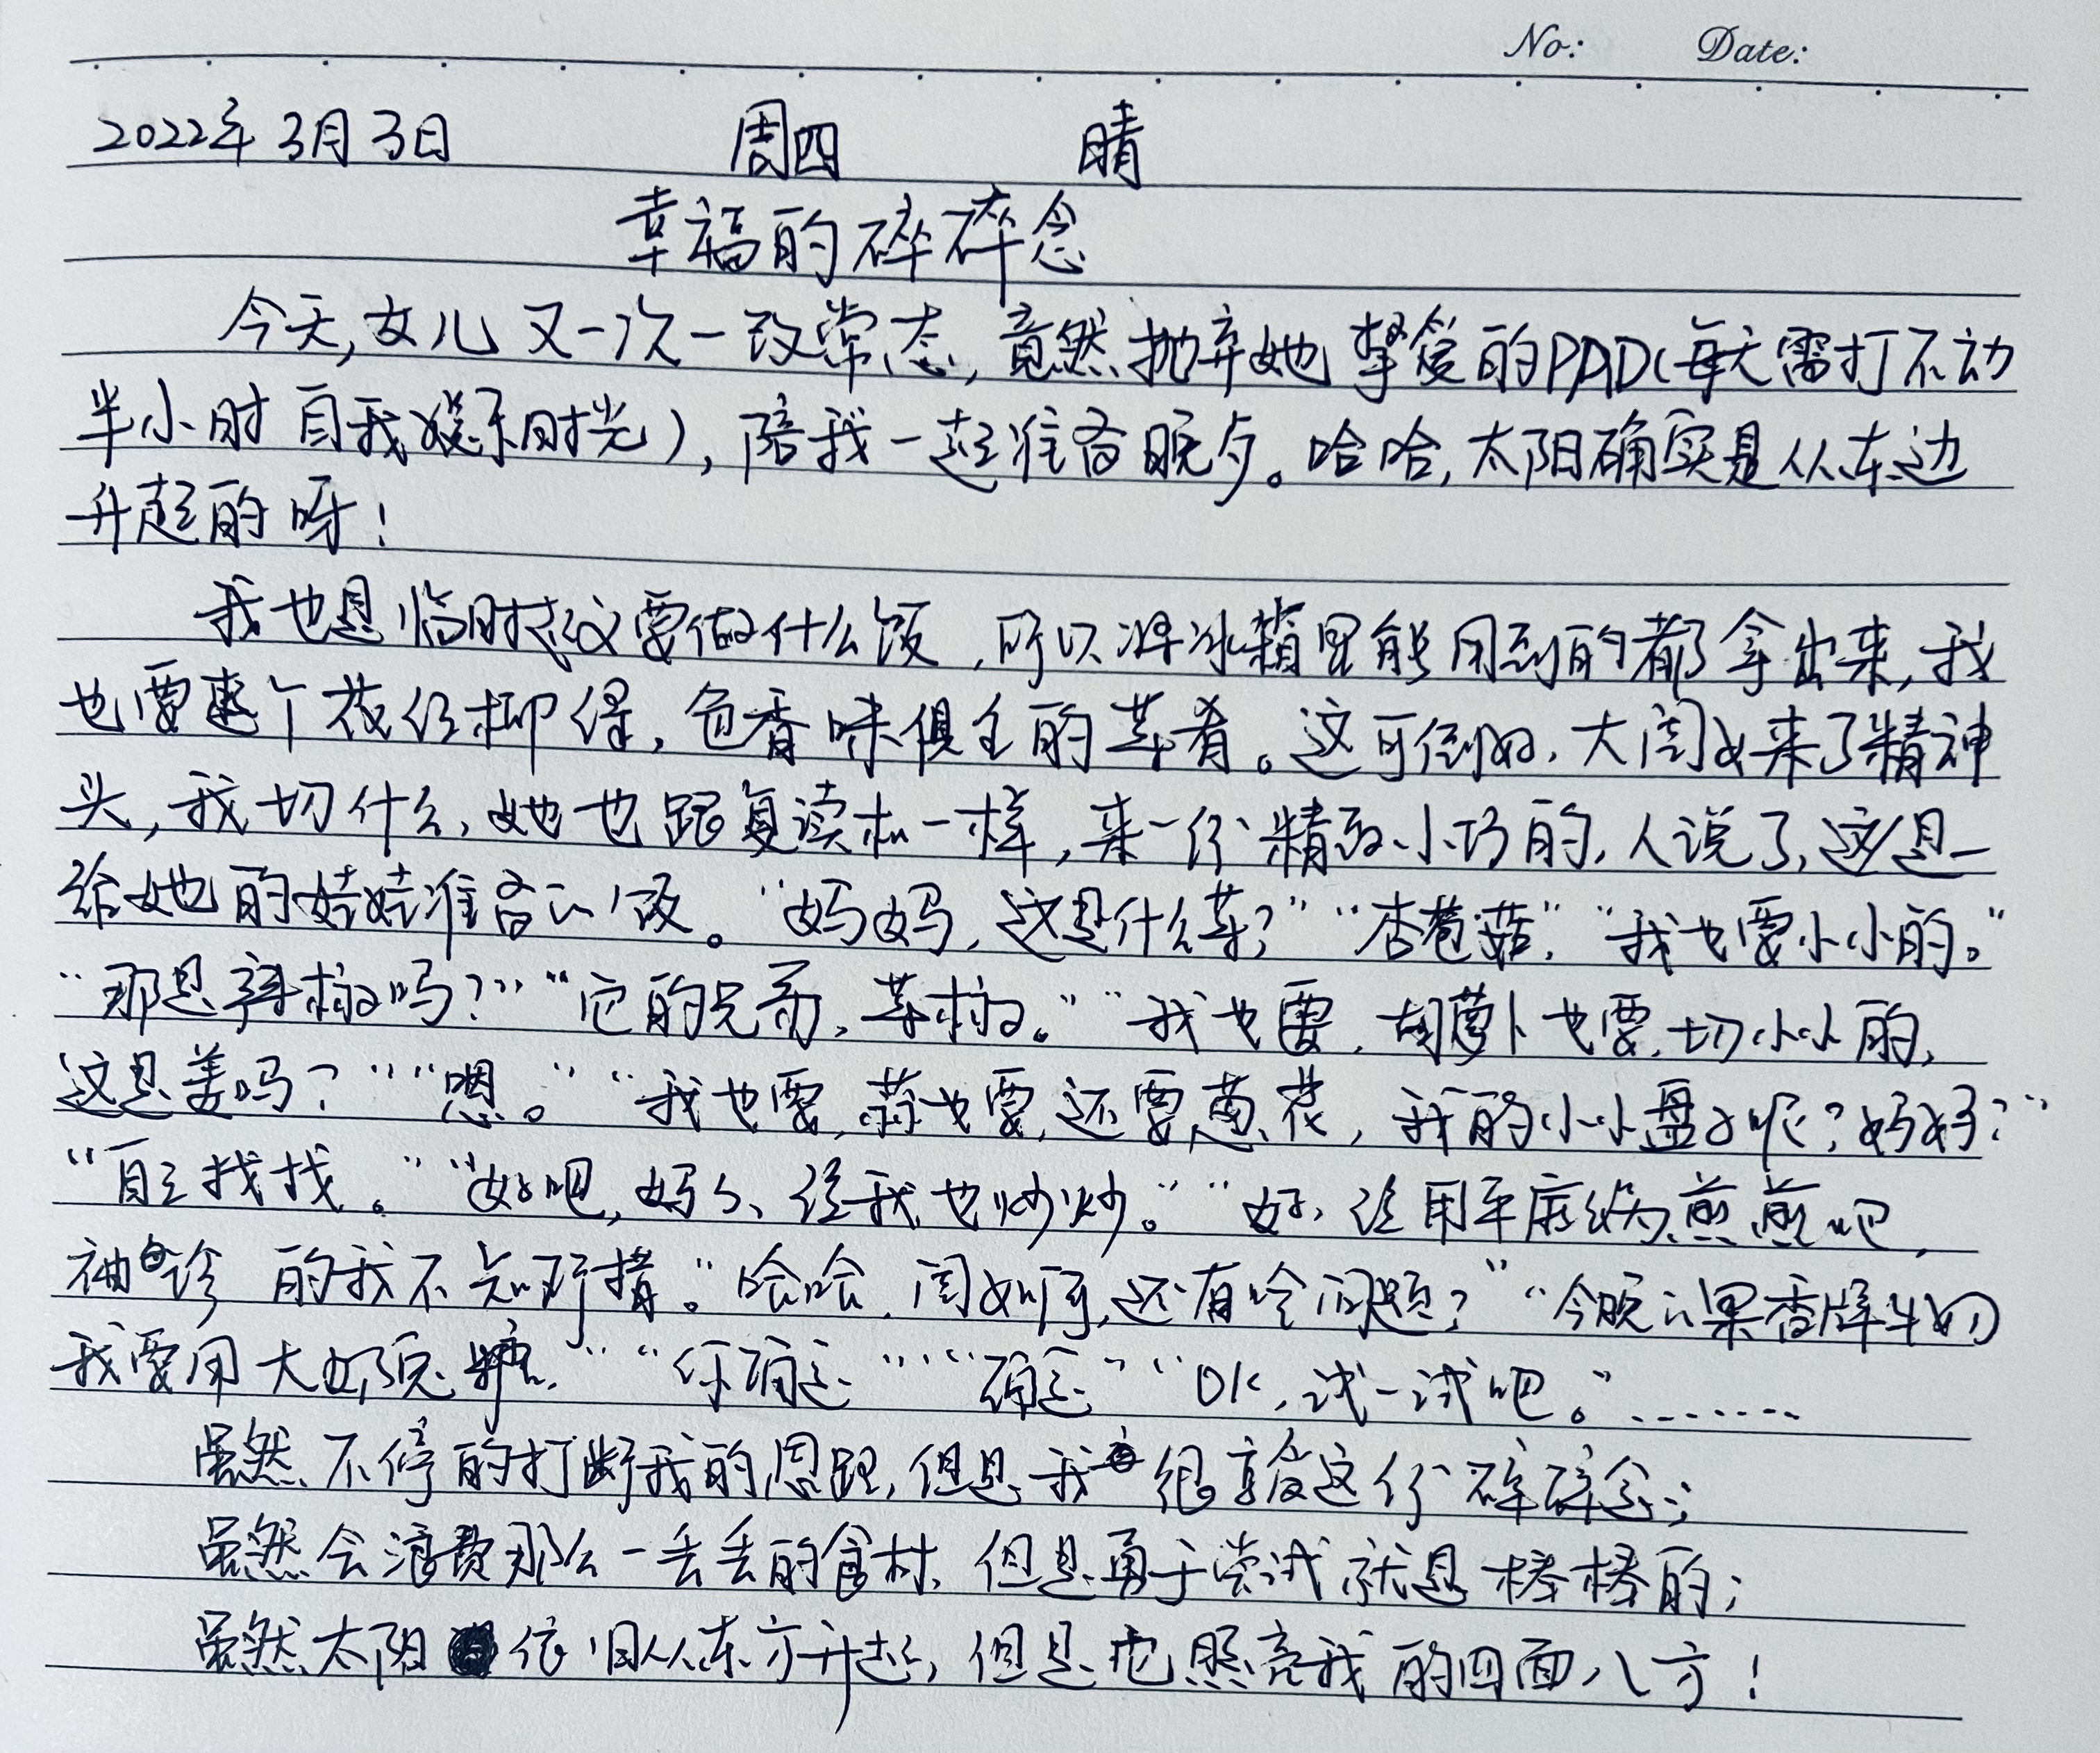 No: Date:
2022年3月3日 周四 晴
幸福的碎碎念
今天,女儿又一次一改常态,竟然抛弃她挚爱的PAD(每天需打不动
半小时自我娱乐时光),陪我一起准备晚夕。哈哈,太阳确实是从东边
升起的呀!
我也是临时起议要做什么饭,所以将冰箱里能用到的都拿出来,我
也要来个花红柳绿,色香味俱全的菜肴。这可倒好,大闺女来了精神
头,我切什么,她也跟复读机一样,来一份精致小巧的,人说了,这是
给她的娃娃准备的饭。“妈妈,这是什么菜?”“杏苞菇,”“我也要小小的。”
“那是辣椒吗?”“它的兄弟,菜椒。”“我也要,胡萝卜也要,切小小的,
这是姜吗?”“嗯。”“我也要,蒜也要,还要葱花,我的小小盘子呢?妈妈?”
“自己找找。”“好吧,妈妈,给我也炒炒。”“好,给用平底锅煎煎吧,
袖珍的我不知所措。”哈哈,闺如何,还有啥问题?”“今晚的果香牌牛奶
我要用大奶兔糖,”“你确定”“确定”“OK,试一试吧。”.......
虽然不停的打断我的思路,但是我很享受这份碎碎念;
虽然会浪费那么一丢丢的食材,但是勇于尝试就是棒棒的;
虽然太阳依旧从东方升起,但是也照亮我的四面八方!